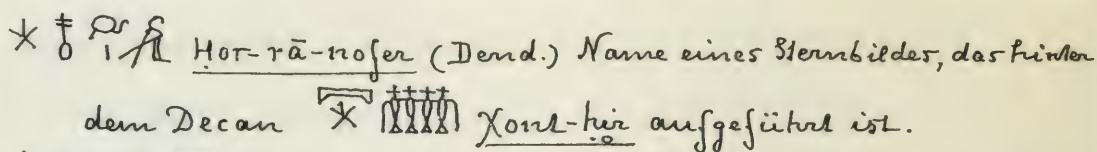 Ḥor-rā-nofer (Dend.) Name eines Sternbildes, das hinter
dem Decan χont-ḥir aufgeführt ist.